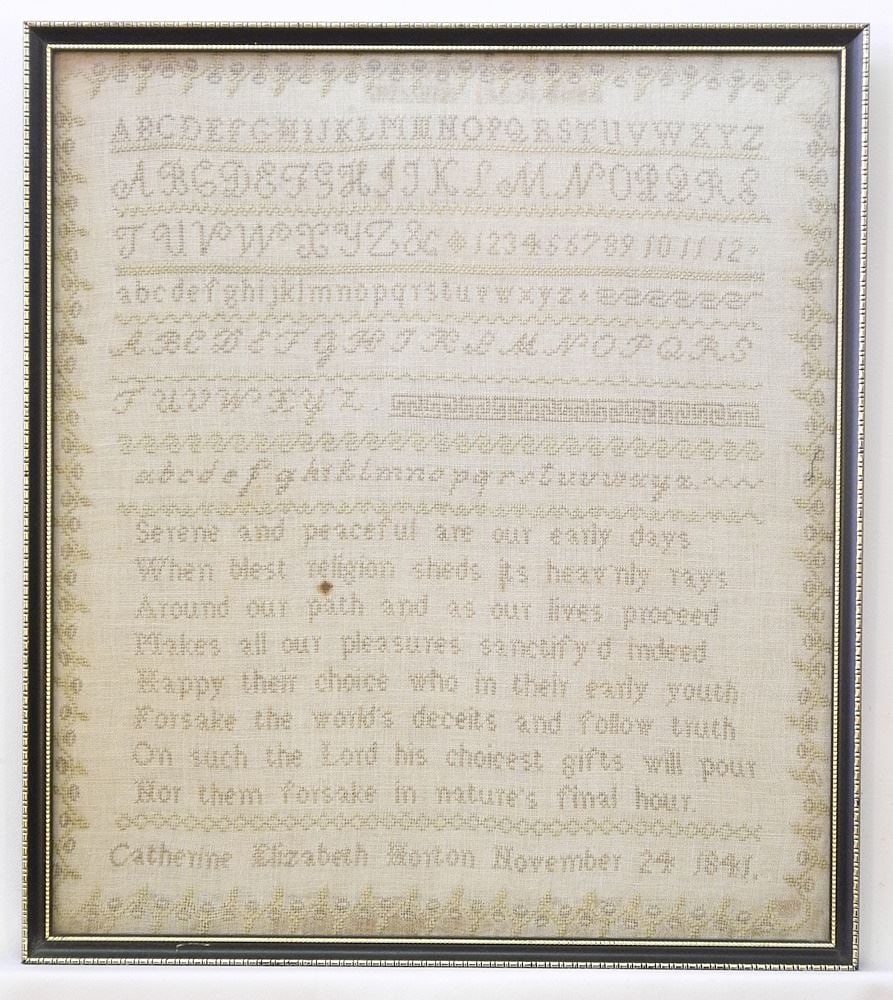 ABCDEFGHIJKLMNOPQRSTUVWXYZ
ABCDEFGHIJKLMNOPQRS
TUVWXYZ& 123456789 10 11 12
abcdefghijklmnopqrstuvwxyz
ABCDEFGHIKLMNOPQRS
TUVWXYZ.
abcdefghiklmnopqrstuvwxyz
Serene and peaceful are our early days
When blest religion sheds its heav'nly rays
Around our path and as our lives proceed
Makes all our pleasures sanctify'd indeed
Happy their choice who in their early youth
Forsake the world's deceits and follow truth
On such the Lord his choicest gifts will pour
Nor them forsake in nature's final hour.
Catherine Elizabeth Norton November 24 1841.